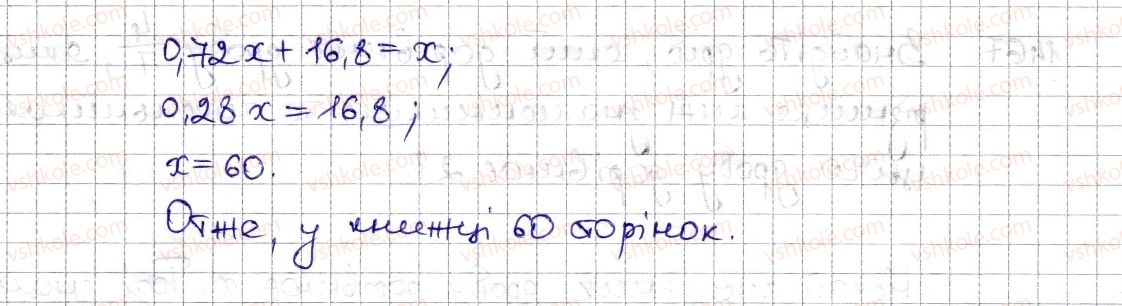 0,72x + 16,8 = x;
0,28x = 16,8;
x = 60.
Отже, у книжці 60 сторінок.